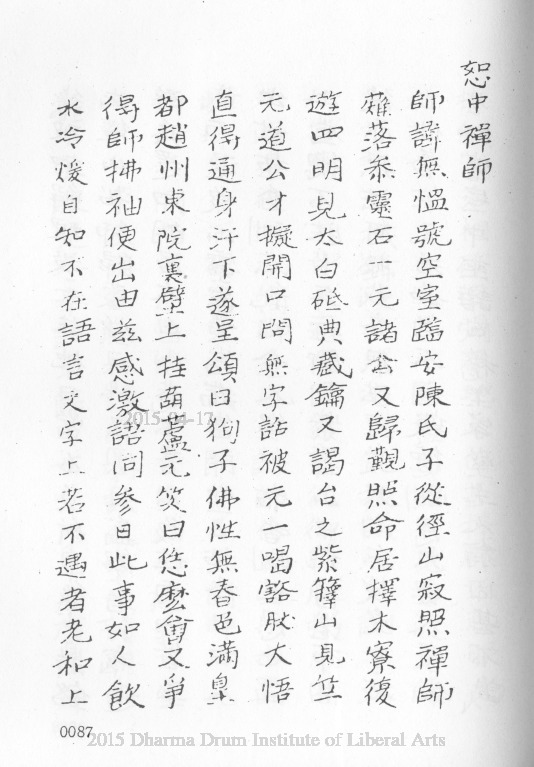 恕中禪師
師諱無慍號空室臨安陳氏子從徑山寂照禪師
薙落叅靈石一元諸公又歸覲照命居擇木寮復
遊四明見太白砥典藏鑰又謁台之紫籜山見竺
元道公才擬開口問無字話被元一喝豁然大悟
直得通身汗下遂呈頌曰狗子佛性無春色滿皇
都趙州東院裏壁上挂葫蘆元笑曰恁麼會又爭
得師拂袖便出由茲感激語同參曰此事如人飲
水冷煖自知不在語言文字上若不遇者老和上
0087
2015-04-17
2015 Dharma Drum Institute of Liberal Arts